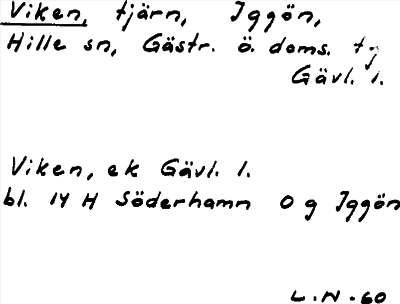 Viken, tjärn, Iggön,
Hille sn, Gästr. ö. doms. tj
Gävl. l.
Viken, ek Gävl. l.
bl. 14 H Söderhamn O g Iggön
L.N.60